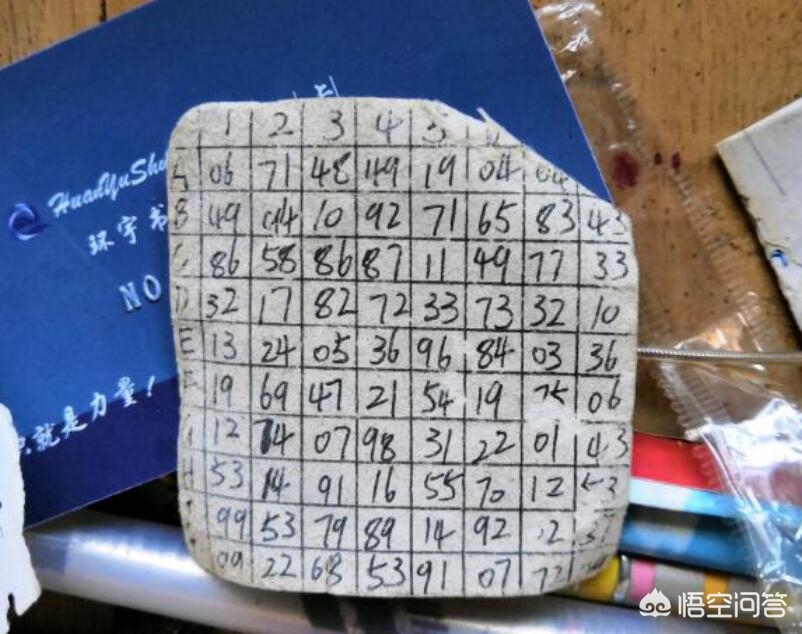 1 2 3 4 5
A 06 71 48 49 19 04 04
B 49 04 10 92 71 65 83 43
C 86 58 86 87 11 49 77 33
D 32 17 82 72 33 73 32 10
E 13 24 05 36 96 84 03 36
F 19 69 47 21 54 19 75 06
12 74 07 98 31 22 01 43
H 53 14 91 16 55 70 12 53
99 53 79 89 14 92 12
09 22 68 53 91 07 72
HuanYuShu
环宇书
NO
就是力量!
悟空问答